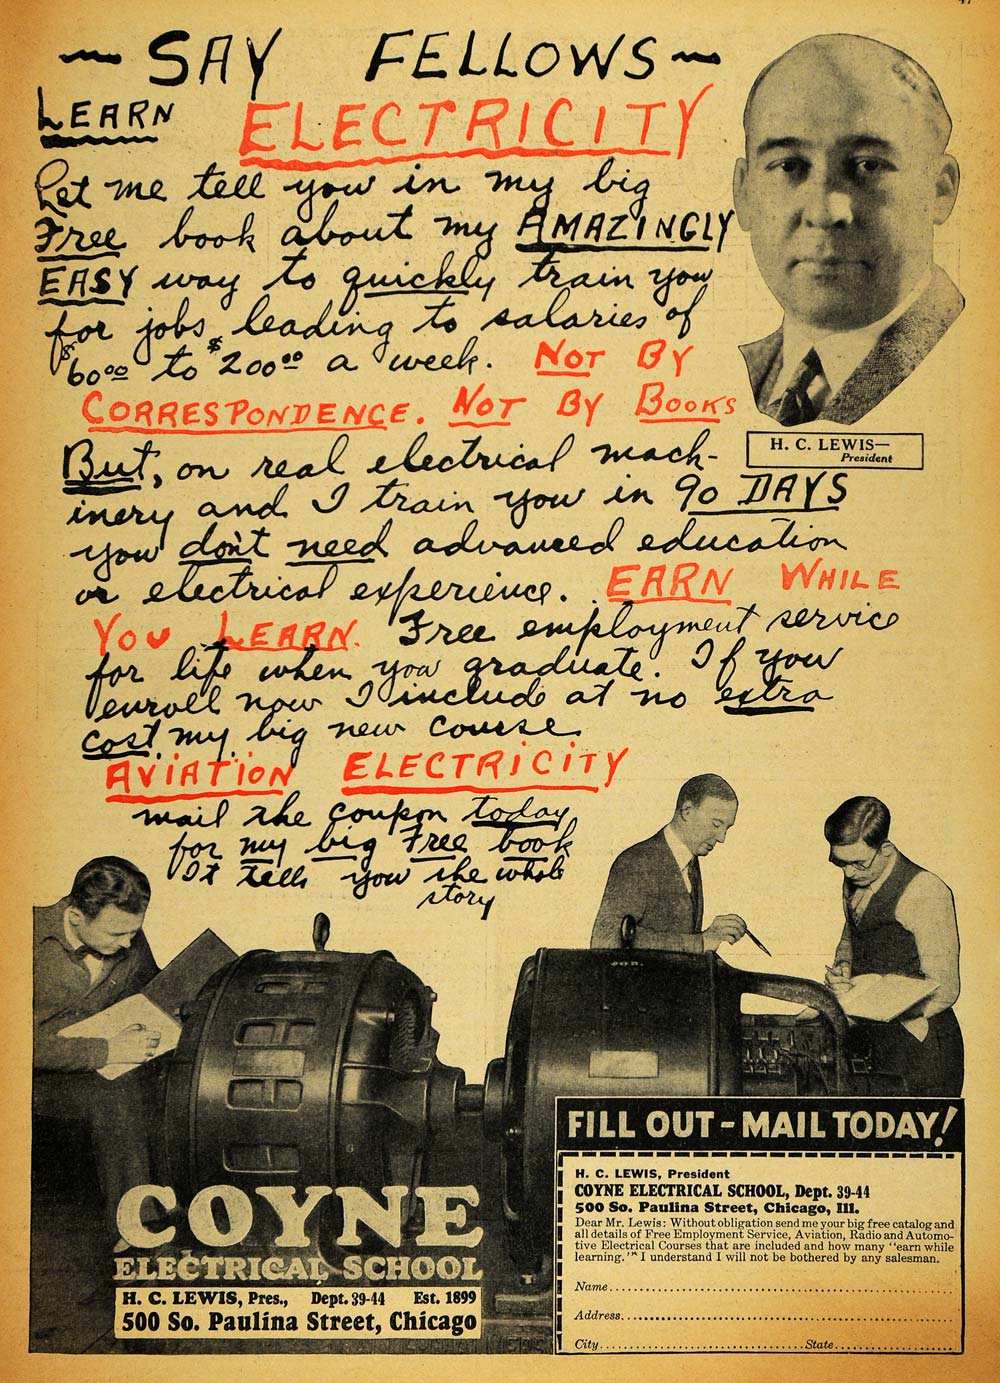 ~ SAY FELLOWS ~
LEARN ELECTRICITY
Let me tell you in my big
Free book about my AMAZINGLY
EASY way to quickly train you
for jobs leading to salaries of
$60.00 to $200.00 a week. NOT BY
CORRESPONDENCE. NOT BY BOOKS
But, on real electrical mach-
inery and I train you in 90 DAYS
you don't need advanced education
or electrical experience. EARN WHILE
YOU LEARN. Free employment service
for life when you graduate. If you
enroll now I include at no extra
cost my big new course
AVIATION ELECTRICITY
mail the coupon today
for my big Free book
It tells you the whole
story
H. C. LEWIS—
President
COYNE
ELECTRICAL SCHOOL
H. C. LEWIS, Pres., Dept. 39-44 Est. 1899
500 So. Paulina Street, Chicago
FILL OUT - MAIL TODAY!
H. C. LEWIS, President
COYNE ELECTRICAL SCHOOL, Dept. 39-44
500 So. Paulina Street, Chicago, Ill.
Dear Mr. Lewis: Without obligation send me your big free catalog and
all details of Free Employment Service, Aviation, Radio and Automo-
tive Electrical Courses that are included and how many "earn while
learning." I understand I will not be bothered by any salesman.
Name
Address
City State